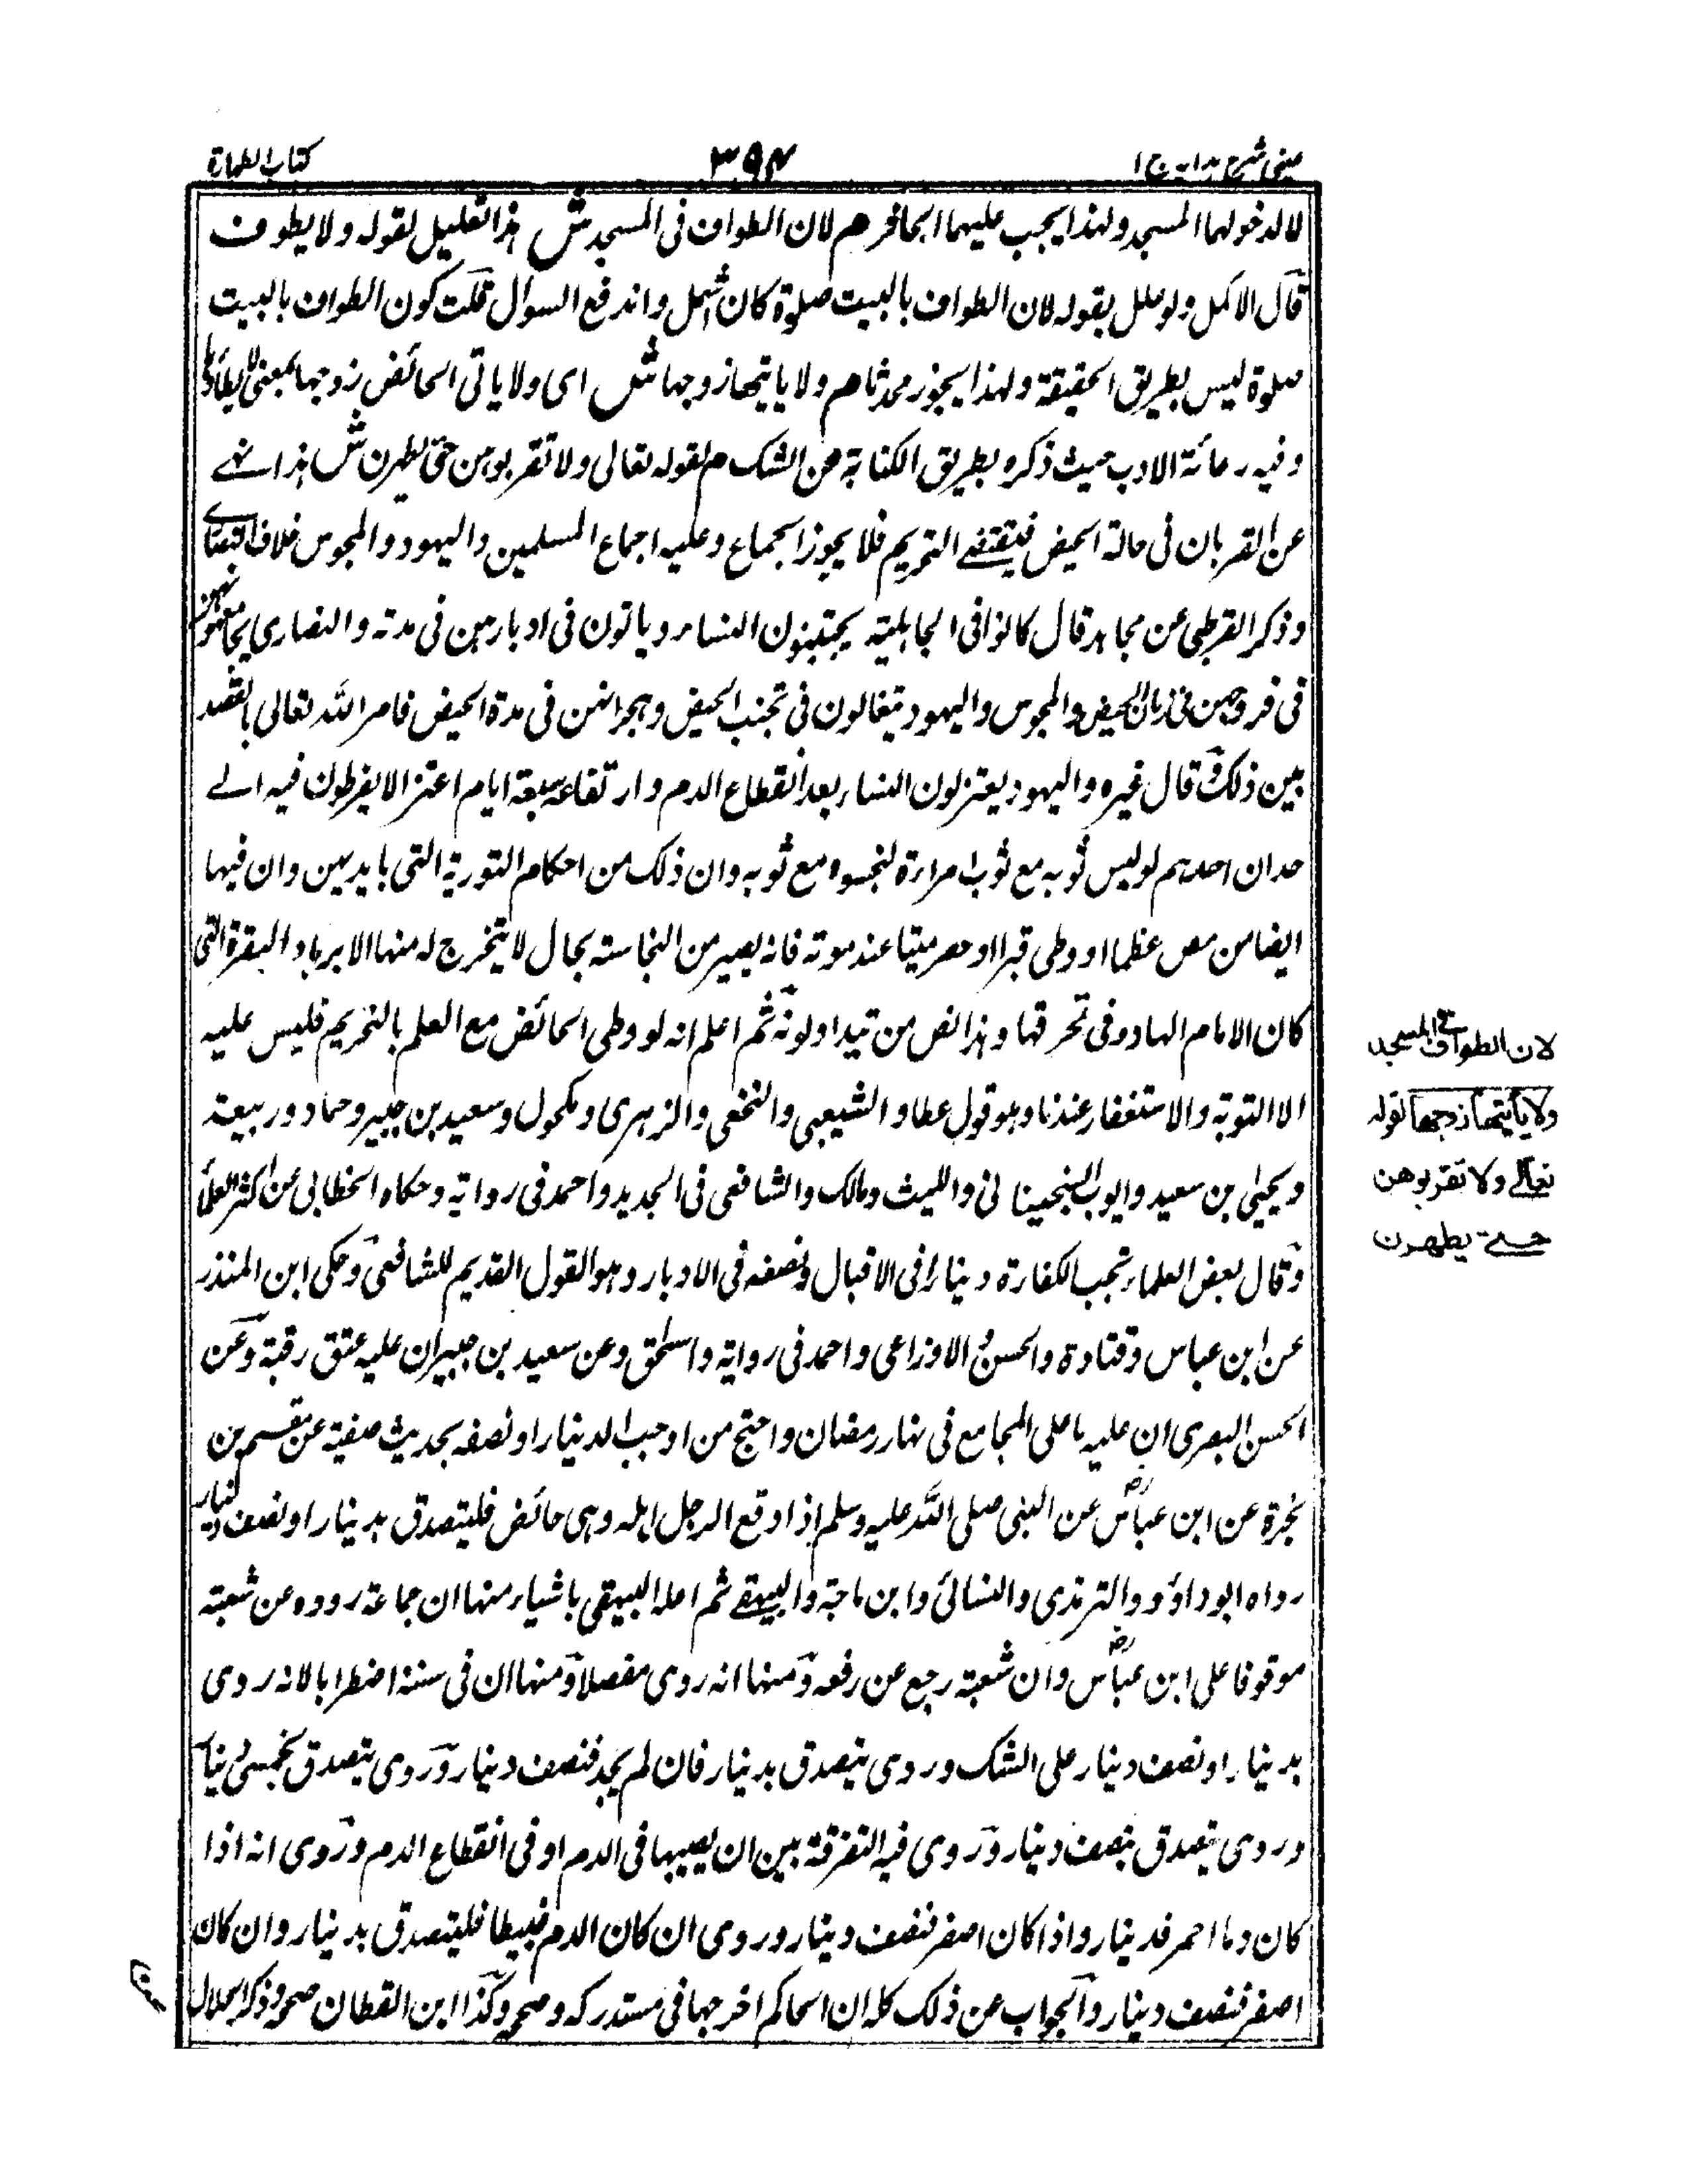 عینی شرح هدایة ج ۱
۳۹۴
کتاب الطهارة
لا لدخولها المسجد ولهذا یجب علیهما الجافرم لان الطواف فی المسجد ش هذا تعلیل لقوله ولا یطوف
قال الاکمل ولو علل بقوله لان الطواف بالبیت صلوة کان اشمل واندفع السوال قلت کون الطواف بالبیت
صلوة لیس بطریق الحقیقة ولهذا یجوز محدثا م ولا یاتیها زوجها ش ای ولا یاتی الحائض زوجها بمعنی لا یطأها
وفیه رعائة الادب حیث ذکره بطریق الکنایة عن الشک م لقوله تعالی ولا تقربوهن حتی یطهرن ش هذا نهی
عن القربان فی حالة الحیض فیقتضے التحریم فلا یجوز الجماع وعلیه اجماع المسلمین والیهود والمجوس خلاف النصاری
وذکر القرطبی عن مجاهد قال کانوا فی الجاهلیة یجتنبون النساء ویاتون فی ادبارهن فی مدته والنصاری یجامعونهن
فی فروجهن فی زمان الحیض والمجوس والیهود یتغالون فی تجنب الحیض وهجرانهن فی مدة الحیض فامر الله تعالی بالقصد
بین ذلک وقال غیره والیهود یعتزلون النساء بعد انقطاع الدم وارتفاعه سبعة ایام اعتزالا یفرطون فیه الے
حد ان احدهم لو لبس ثوبه مع ثوب امراءة لنجسوه مع ثوبه وان ذلک من احکام التوریة التی بایدیهن وان فیها
ایضا من مص عظما او وطی قبرا او حصر میتا عند موته فانه یصیر من النجاسته بحال لا یتخرج له منها الا برماد البقرة التی
کان الامام الهادونی تحرقها وهذا نص من تیداولونه ثم اعلم انه لو وطی الحائض مع العلم بالتحریم فلیس علیه
الا التوبة والاستغفار عندنا وهو قول عطاء والشیعبی والنخعی والزهری ومکحول وسعید بن جبیر وحماد وربیعة
ویحیی بن سعید وایوب السنجیتانی واللیث ومالک والشافعی فی الجدید واحمد فی روایة وحکاه الخطابی عن اکثر العلماء
وقال بعض العلماء تجب الکفارة دینارا فی الاقبال ونصفه فی الادبار وهو القول القدیم للشافعی وحکی ابن المنذر
عن ابن عباس وقتادة والحسن والاوزاعی واحمد فی روایة واسحق وعن سعید بن جبیر ان علیه عتق رقبة وعن
الحسن البصری ان علیه ما علی المجامع فی نهار رمضان واحتج من اوجب الدینار او نصفه بحدیث صفیة عن مقسم بن
بجرة عن ابن عباس عن النبی صلی الله علیه وسلم اذا وقع الرجل اهله وهی حائض فلیتصدق بدینار او نصف دینار
رواه ابو داؤد والترمذی والنسائی وابن ماجة والبیهقے ثم اعله البیهقی باشیاء منها ان جماعة رووه عن شعبة
موقوفا علی ابن عباس وان شعبة رجع عن رفعه ومنها انه روی مفصلا ومنها ان فی سننه اضطرابا لانه روی
بدینار او نصف دینار علی الشک وروی یتصدق بدینار فان لم یجد فنصف دینار وروی یتصدق بخمسی دینار
وروی یتصدق بنصف دینار وروی فیه التفرقة بین ان یصیبها فی الدم او فی انقطاع الدم وروی انه اذا
کان دما احمر فدینار واذا کان اصفر فنصف دینار وروی ان کان الدم غبیطا فلیتصدق بدینار وان کان
اصفر فنصف دینار والجواب عن ذلک کله ان الحاکم اخرجها فی مستدرکه وصححه وکذا ابن القطان صححه وذکر الخلال
لان الطواف فی المسجد
ولا یأتیها زوجها لقوله
تعالی ولا تقربوهن
حتے یطهرن